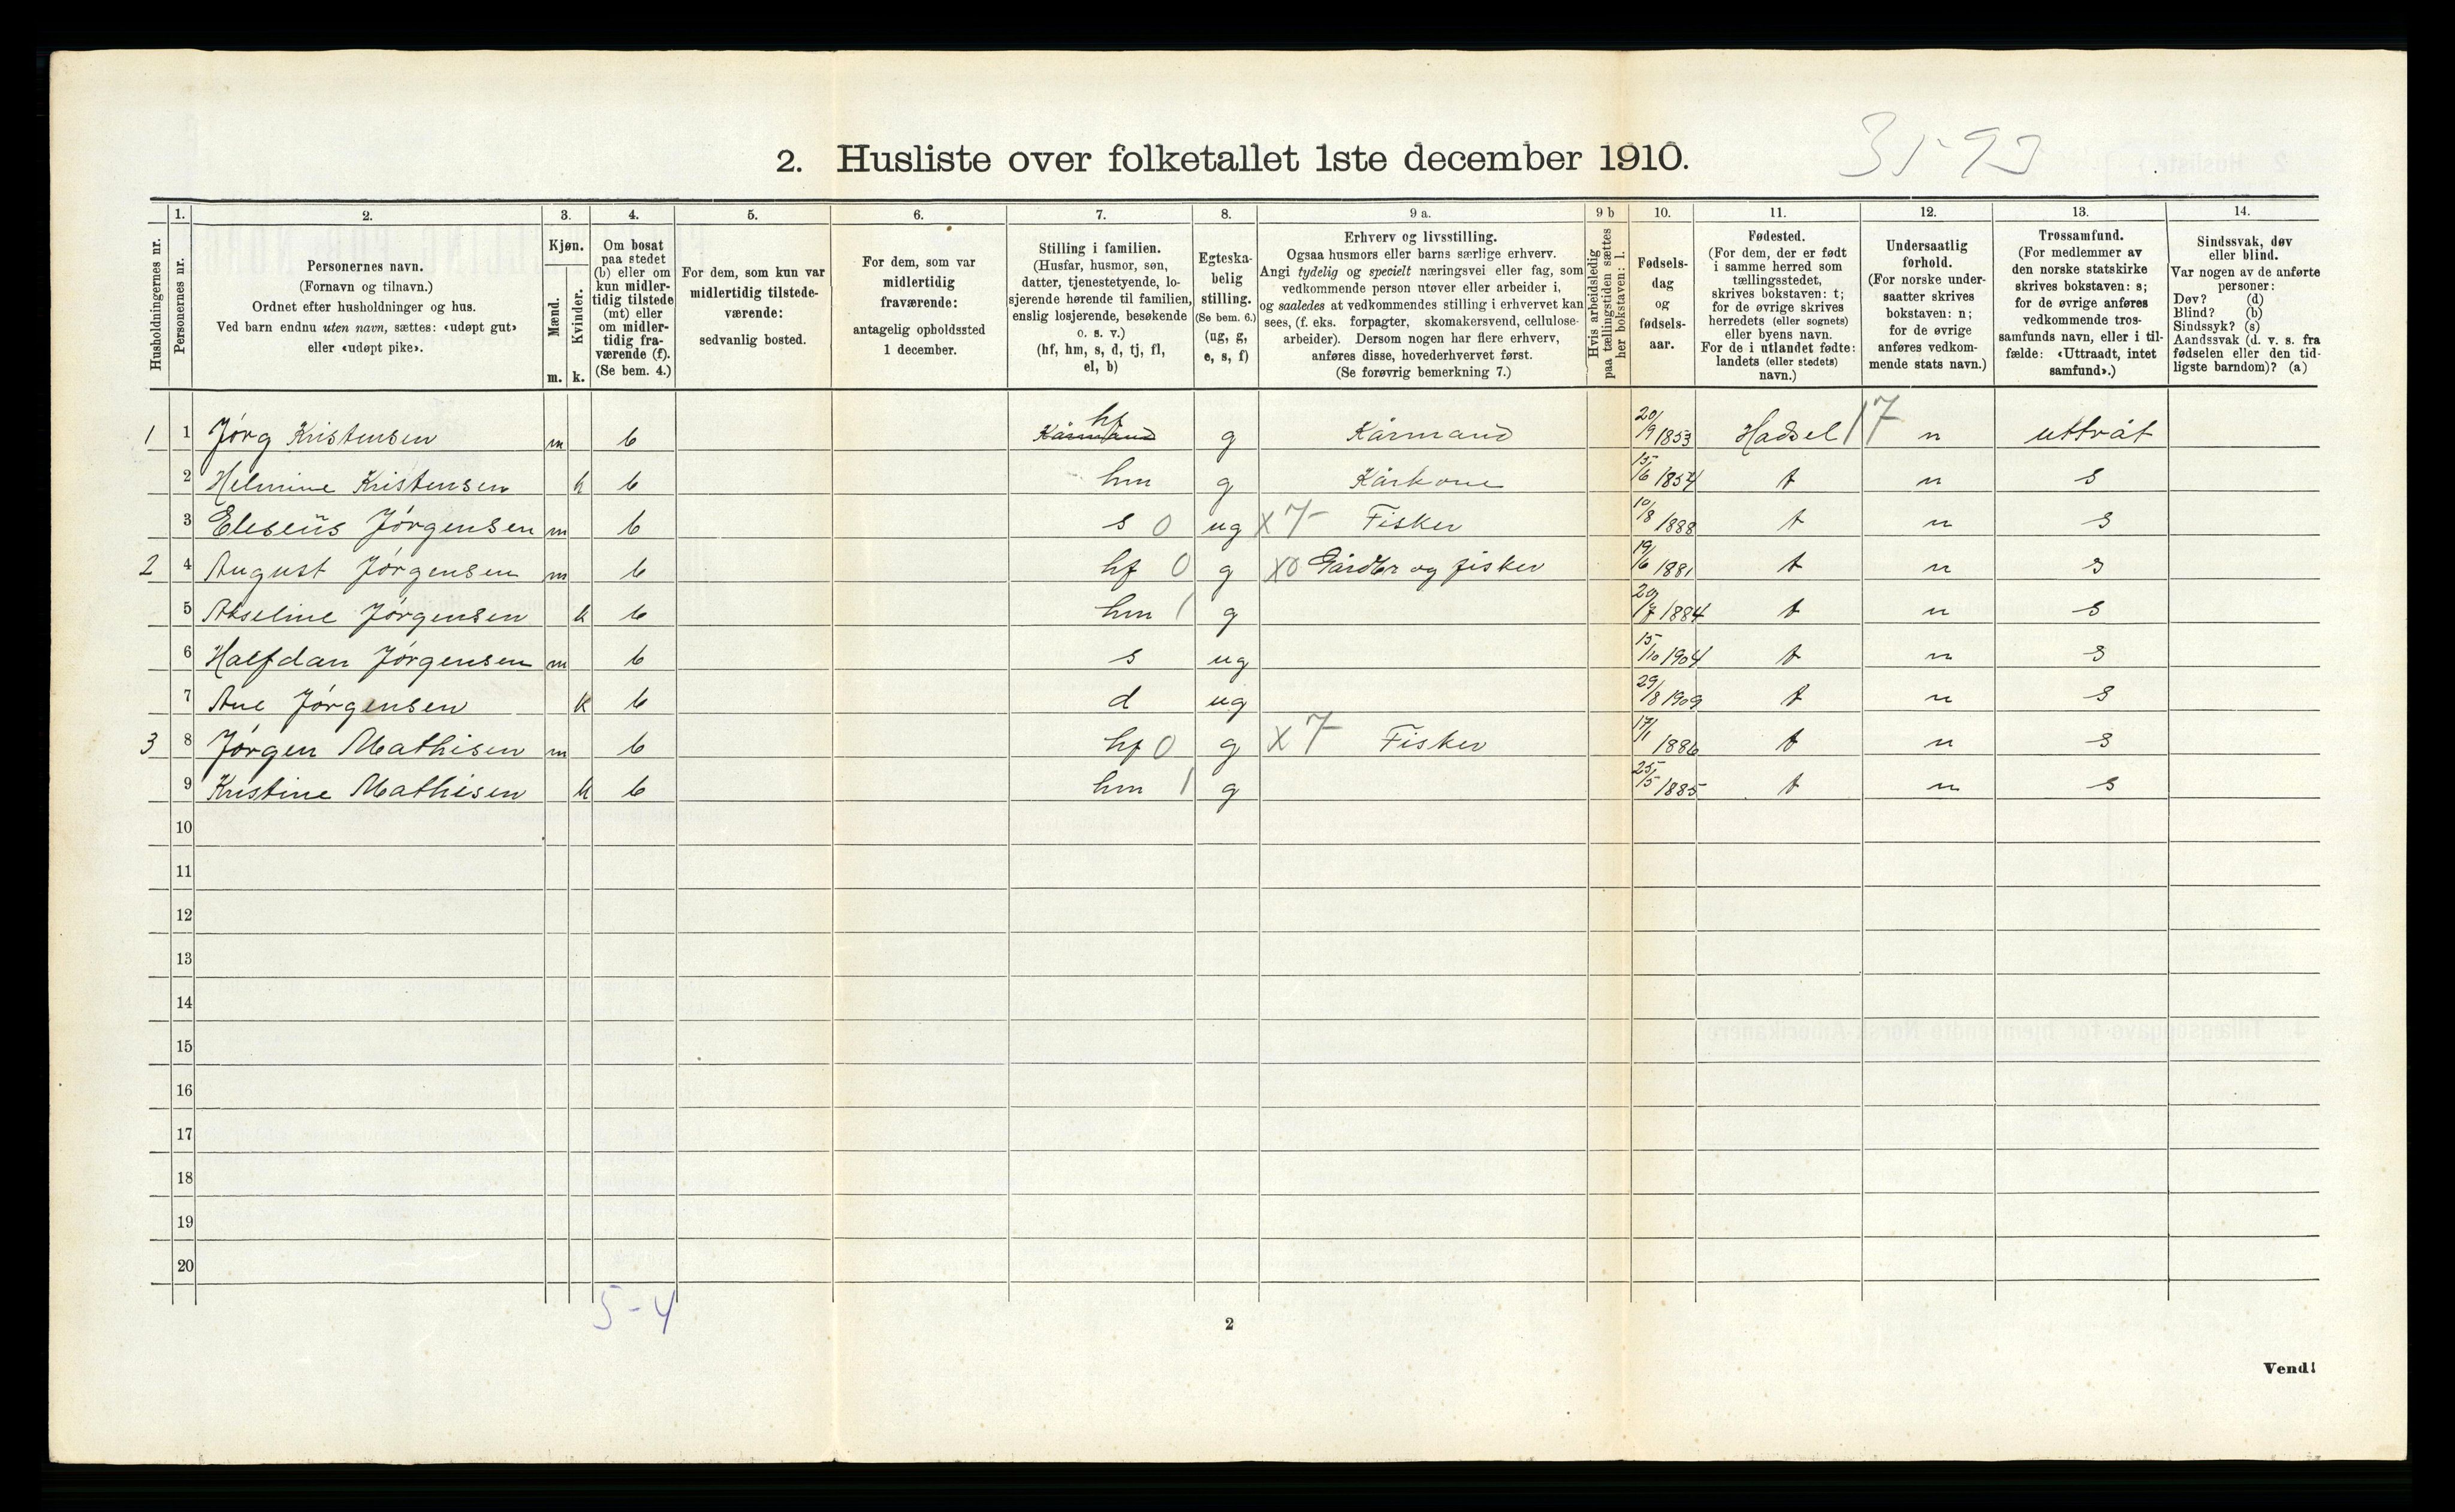 2. Husliste over folketallet 1ste december 1910.
1. 2. 3. 4. 5. 6. 7. 8. 9 a. 9 b 10. 11. 12. 13. 14.
Husholdningernes nr.
Personernes nr.
Personernes navn.
(Fornavn og tilnavn.)
Ordnet efter husholdninger og hus.
Ved barn endnu uten navn, sættes: «udøpt gut»
eller «udøpt pike».
Kjøn.
Mænd.
Kvinder.
m. k.
Om bosat
paa stedet
(b) eller om
kun midler-
tidig tilstede
(mt) eller
om midler-
tidig fra-
værende (f).
(Se bem. 4.)
For dem, som kun var
midlertidig tilstede-
værende:
sedvanlig bosted.
For dem, som var
midlertidig
fraværende:
antagelig opholdssted
1 december.
Stilling i familien.
(Husfar, husmor, søn,
datter, tjenestetyende, lo-
sjerende hørende til familien,
enslig losjerende, besøkende
o. s. v.)
(hf, hm, s, d, tj, fl,
el, b)
Egteska-
belig
stilling.
(Se bem. 6.)
(ug, g,
e, s, f)
Erhverv og livsstilling.
Ogsaa husmors eller barns særlige erhverv.
Angi tydelig og specielt næringsvei eller fag, som
vedkommende person utøver eller arbeider i,
og saaledes at vedkommendes stilling i erhvervet kan
sees, (f. eks. forpagter, skomakersvend, cellulose-
arbeider). Dersom nogen har flere erhverv,
anføres disse, hovederhvervet først.
(Se forøvrig bemerkning 7.)
Hvis arbeidsledig
paa tællingstiden sættes
her bokstaven: l.
Fødsels-
dag
og
fødsels-
aar.
Fødested.
(For dem, der er født
i samme herred som
tællingsstedet,
skrives bokstaven: t;
for de øvrige skrives
herredets (eller sognets)
eller byens navn.
For de i utlandet fødte:
landets (eller stedets)
navn.)
Undersaatlig
forhold.
(For norske under-
saatter skrives
bokstaven: n;
for de øvrige
anføres vedkom-
mende stats navn.)
Trossamfund.
(For medlemmer av
den norske statskirke
skrives bokstaven: s;
for de øvrige anføres
vedkommende tros-
samfunds navn, eller i til-
fælde: «Uttraadt, intet
samfund».)
Sindssvak, døv
eller blind.
Var nogen av de anførte
personer:
Døv? (d)
Blind? (b)
Sindssyk? (s)
Aandssvak (d. v. s. fra
fødselen eller den tid-
ligste barndom)? (a)
1 1 Jørg Kristensen m b Kårmand hf g Kårmand 20/9 1853 Hadsel 17 n uttråt
2 Helmine Kristensen k b hm g Kårkone 15/6 1854 t n s
3 Eleseüs Jørgensen m b s 0 ug x 7 Fisker 10/8 1888 t n s
2 4 August Jørgensen m b hf 0 g x0 Gårdbr og fisker 19/6 1881 t n s
5 Akseline Jørgensen k b hm 1 g 20/7 1884 t n s
6 Halfdan Jørgensen m b s ug 15/10 1904 t n s
7 Ane Jørgensen k b d ug 29/8 1909 t n s
3 8 Jørgen Mathisen m b hf 0 g x 7 Fisker 17/1 1886 t n s
9 Kristine Mathisen k b hm 1 g 25/5 1885 t n s
10
11
12
13
14
15
16
17
18
19
20
5-4
2
Vend!